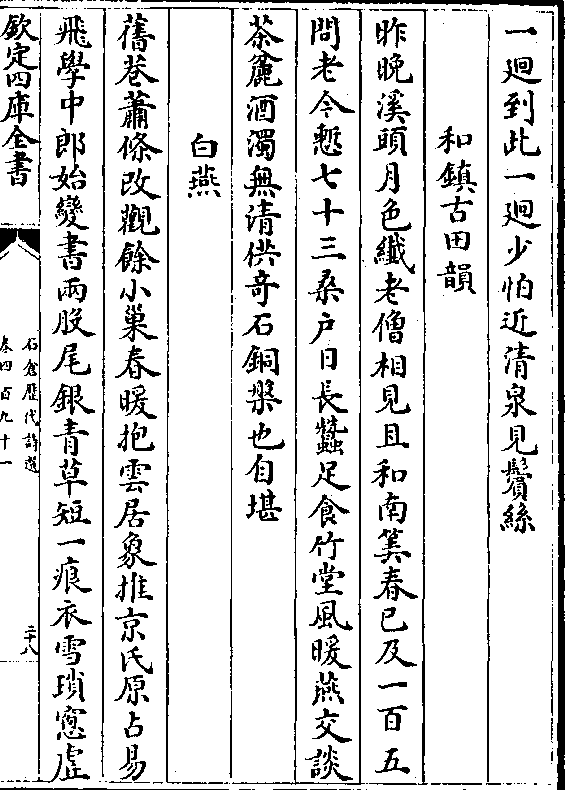 一迴到此一迴少怕近清泉見鬢絲
和鎮古田韻
昨晚溪頭月色纖老僧相見且和南筭春已及一百五
問老今慙七十三桑戶日長蠶足食竹堂風暖燕交談
茶麄酒濁無清供奇石銅槃也自堪
白燕
舊巷蕭條改觀餘小巢春暖抱雲居象推京氏原占易
飛學中郎始變書兩股尾銀青草短一痕衣雪瑣窓虛
欽定四庫全書
石倉歷代詩選
卷四百九十一
二十八